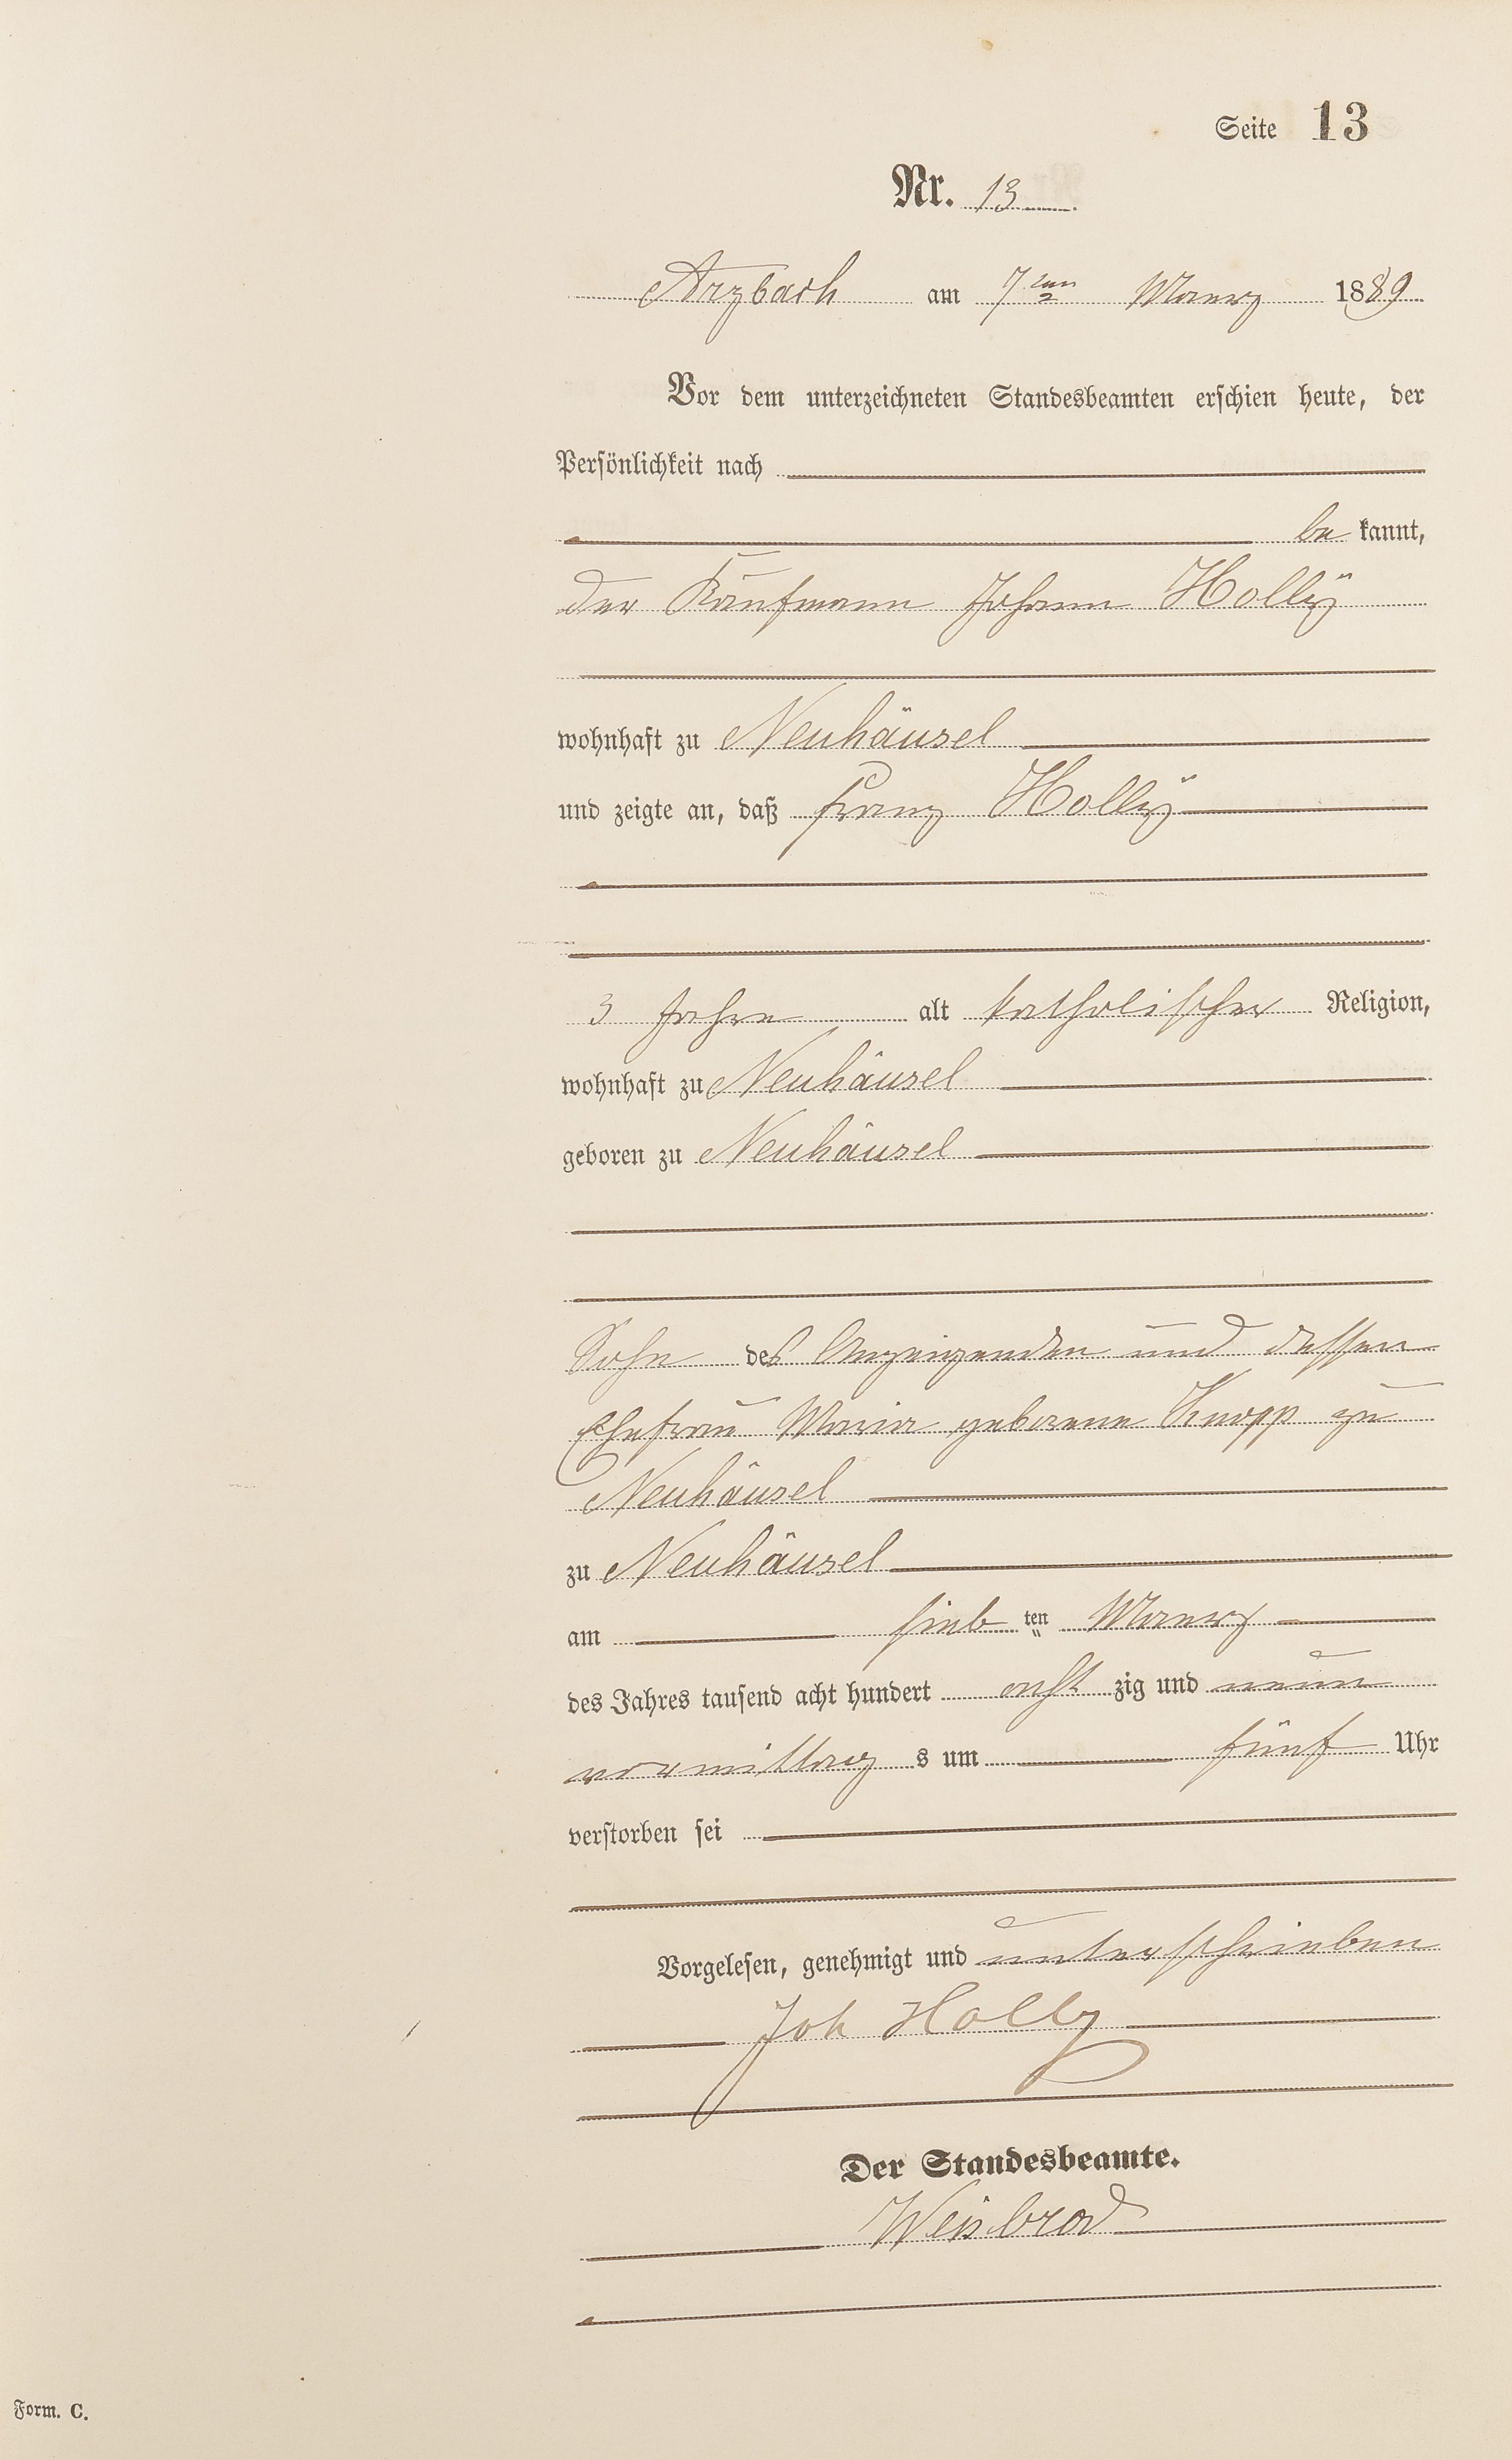 Seite 13
Nr. 13
Arzbach am 7ten Maerz 1889
Vor dem unterzeichneten Standesbeamten erschien heute, der
Persönlichkeit nach
be kannt,
der Kaufmann Johann Hollÿ
wohnhaft zu Neuhäusel
und zeigte an, daß Franz Hollÿ
3 Jahre alt katholischer Religion,
wohnhaft zu Neuhäusel
geboren zu Neuhäusel
Sohn des Anzeigenden und dessen
Ehefrau Maria geborene Knopp zu
Neuhäusel
zu Neuhäusel
am sieb ten Maerz
des Jahres tausend acht hundert acht zig und neun
vormittag s um fünf Uhr
verstorben sei
Vorgelesen, genehmigt und unterschrieben
Joh Holly
Der Standesbeamte.
Weisbrod
Form. C.